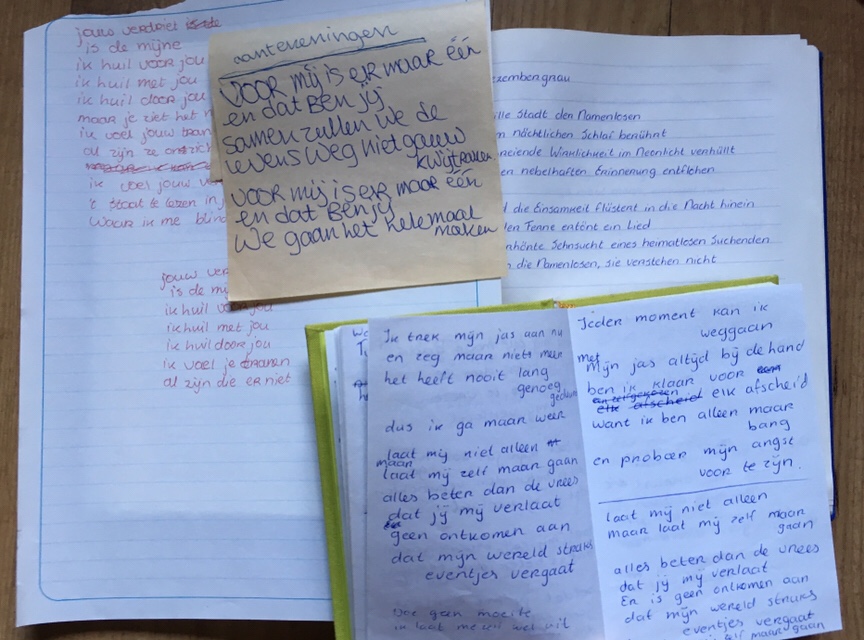 jouw verdriet
is de mijne
ik huil voor jou
ik huil met jou
ik huil door jou
maar je ziet het n
ik voel jouw tran
al zijn ze onzich
ik voel jouw ve
't staat te lezen in j
waar ik me blind
jouw ver
is de mij
ik huil voor jou
ik huil met jou
ik huil door jou
ik voel je tranen
al zijn die er niet
aantekeningen
VOOR mij is er maar één
en dat Ben jij
samen zullen we de
levensweg niet gauw
kwijtraken
voor mij is er maar één
en dat Ben jij
We gaan het helemaal
maken
zembergrau
lle Stadt den Namenlosen
n nächtlichen Schlaf berührt
neiende Wirklichkeit im Neonlicht verhüllt
en nebelhaften Erinnerung entfliehen
d die Einsamkeit flüstert in die Nacht hinein
len Ferne ertönt ein Lied
rhönte Sehnsucht eines heimatlosen Suchenden
die Namenlosen, sie verstehen nicht
Ik trek mijn jas aan nu
en zeg maar niets meer
het heeft nooit lang
genoeg
geduurd
dus ik ga maar weer
laat mij niet alleen
maar
laat mij zelf maar gaan
alles beter dan de vrees
dat jij mij verlaat
geen ontkomen aan
dat mijn wereld straks
eventjes vergaat
Doe geen moeite
ik laat mezelf wel uit
Ieder moment kan ik
weggaan
met
Mijn jas altijd bij de hand
ben ik klaar voor een
an zelfgekozen
elk afscheid elk afscheid
want ik ben alleen maar
bang
en probeer mijn angst
voor te zijn.
laat mij niet alleen
maar laat mij zelf maar
gaan
alles beter dan de vrees
dat jij mij verlaat
En is geen ontkomen aan
dat mijn wereld straks
eventjes vergaat
maar gaan